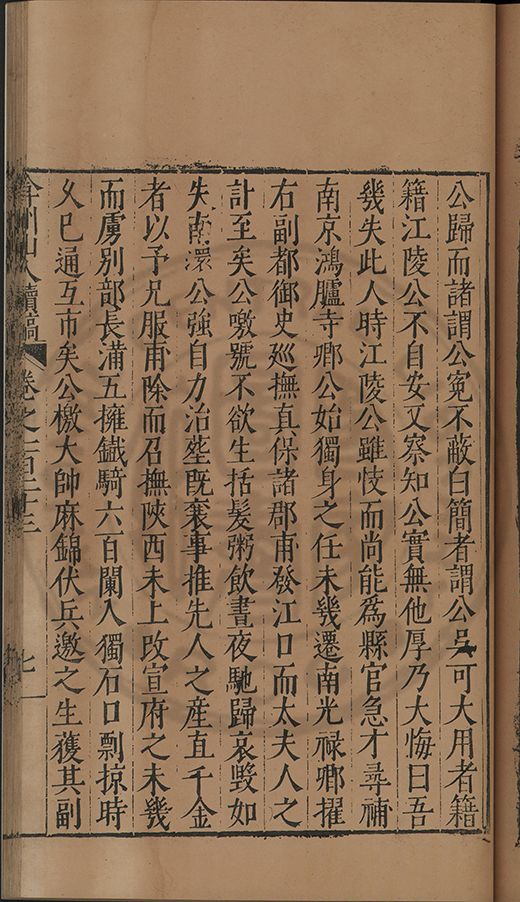 公歸而諸謂公寃不敝白簡者謂公吴可大用者籍
籍江陵公不自安又察知公實無他厚乃大悔曰吾
幾失此人時江陵公雖忮而尚能爲縣官急才尋補
南京鴻臚寺卿公始獨身之任未幾遷南光禄卿擢
右副都御史廵撫真保諸郡甫發江口而太夫人之
計至矣公噭號不欲生括髮粥飲晝夜馳歸哀毀如
失南滁公強自力治塟既襄事推先人之産直千金
者以予兄服甫除而召撫陝西未上改宣府之未幾
而虜别部長滿五擁鐵騎六百闌入獨石口剽掠時
乆已通互市矣公檄大帥麻錦伏兵邀之生獲其副
弇州山人續稿 卷之一百二十三 七